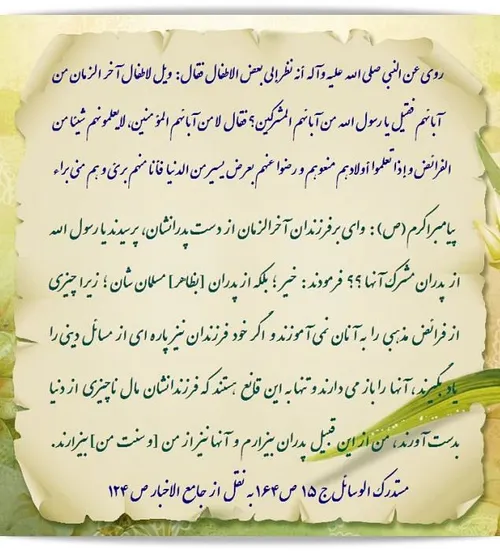 روی عن النبی صلی الله علیه وآله أنه نظر إلی بعض الاطفال فقال: ویل لاطفال آخر الزمان من
آبائهم فقیل یا رسول الله من آبائهم المشرکین؟ فقال لا من آبائهم المؤمنین، لایعلمونهم شیئا من
الفرائض و إذا تعلموا أولادهم منعوهم و رضوا عنهم بعرض یسیر من الدنیا فأنا منهم بریٔ و هم منی براء
پیامبر اکرم (ص) : وای بر فرزندان آخرالزمان از دست پدرانشان، پرسیدند یا رسول الله
از پدران مشرک آنها ؟؟ فرمودند : خیر ؛ بلکه از پدران [بظاهر] مسلمان شان ؛ زیرا چیزی
از فرائض مذهبی را به آنان نمی آموزند و اگر خود فرزندان نیز پاره ای از مسائل دینی را
یاد بگیرند ، آنها را باز می دارند و تنها به این قانع هستند که فرزندانشان مال ناچیزی از دنیا
بدست آورند ، من از این قبیل پدران بیزارم و آنها نیز از من [و سنت من] بیزارند.
مستدرک الوسائل ج ۱۵ ص ۱۶۴ به نقل از جامع الاخبار ص ۱۲۴